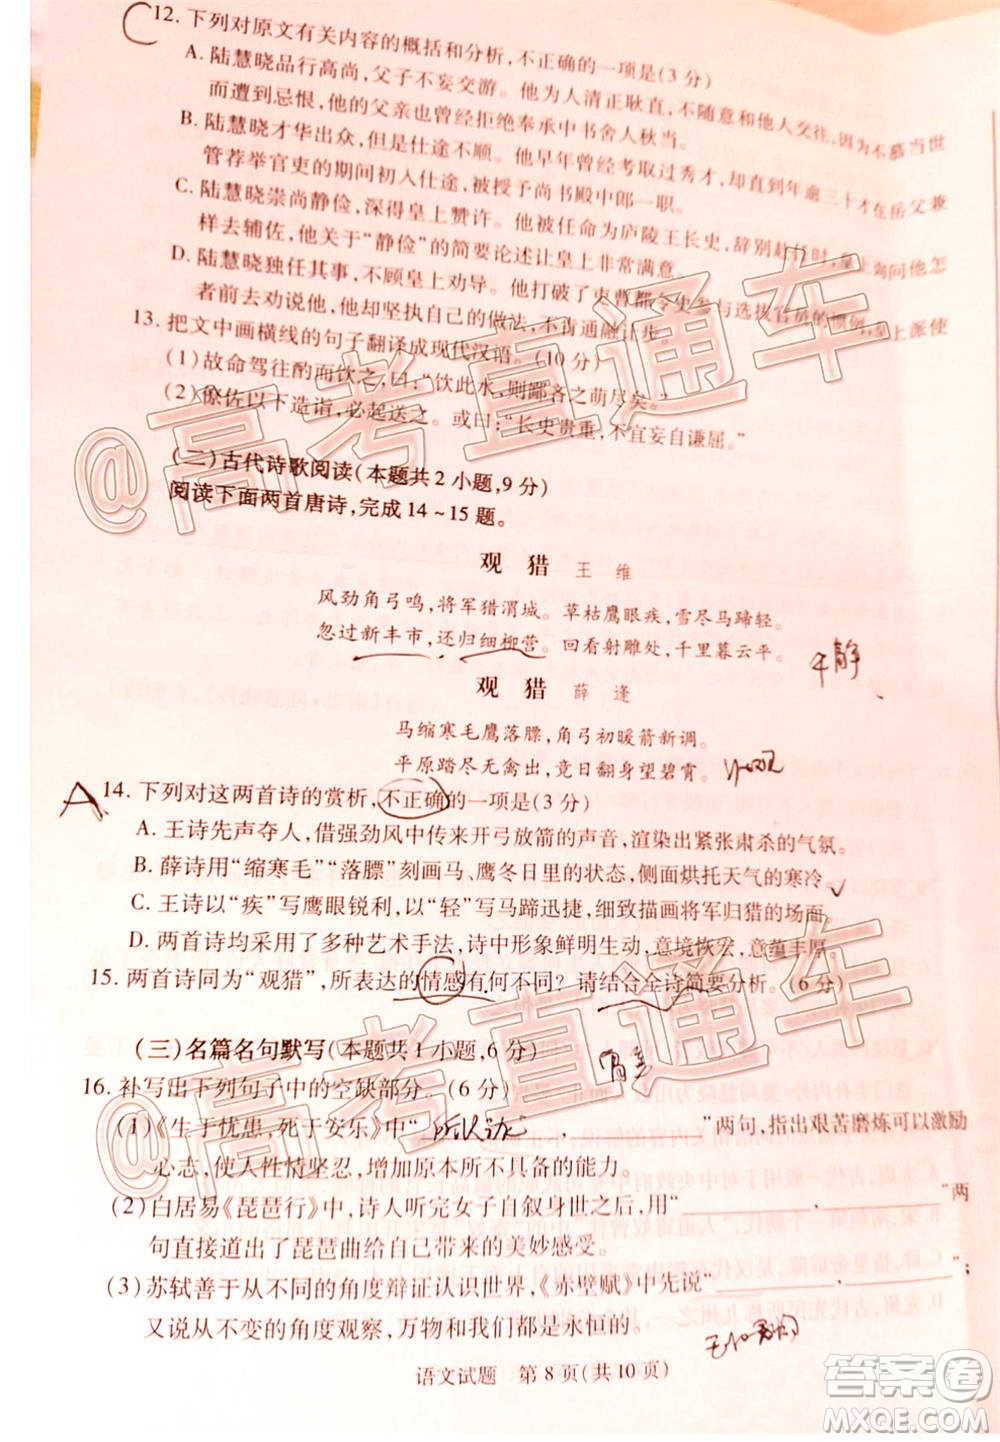 C 12. 下列对原文有关内容的概括和分析,不正确的一项是(3 分)
A. 陆慧晓品行高尚,父子不妄交游。他为人清正耿直,不随意和他人交往,因为不慕当世
而遭到忌恨,他的父亲也曾经拒绝奉承中书舍人秋当。
B. 陆慧晓才华出众,但是仕途不顺。他早年曾经考取过秀才,却直到年逾三十才在岳父兼
管荐举官吏的期间初入仕途,被授予尚书殿中郎一职。
C. 陆慧晓崇尚静俭,深得皇上赞许。他担任庐陵王长史,辞别赴任时,皇上询问他怎
样去辅佐,他关于“静俭”的简要论述让皇上非常满意。
D. 陆慧晓独任其事,不顾皇上劝导。他打破了吏曹都令史参与选拔官员的惯例,皇上派使
者前去劝说他,他却坚执自己的做法,不肯通融让步。
13. 把文中画横线的句子翻译成现代汉语。(10 分)
(1)故命驾往酌而饮之,曰:“饮此水,则鄙吝之萌尽矣。”
(2)僚佐以下造诣,必起送之。或曰:“长史贵重,不宜妄自谦屈。”
(二)古代诗歌阅读(本题共2 小题,9 分)
阅读下面两首唐诗,完成 14~15 题。
观 猎 王 维
风劲角弓鸣,将军猎渭城。草枯鹰眼疾,雪尽马蹄轻。
忽过新丰市,还归细柳营。回看射雕处,千里暮云平。
观 猎 薛 逢
马缩寒毛鹰落膘,角弓初暖箭新调。
平原踏尽无禽出,竟日翻身望碧霄。
A. 14. 下列对这两首诗的赏析,不正确的一项是(3 分)
A. 王诗先声夺人,借强劲风中传来开弓放箭的声音,渲染出紧张肃杀的气氛。
B. 薛诗用“缩寒毛”“落膘”刻画马、鹰冬日里的状态,侧面烘托天气的寒冷。
C. 王诗以“疾”写鹰眼锐利,以“轻”写马蹄迅捷,细致描画将军归猎的场面。
D. 两首诗均采用了多种艺术手法,诗中形象鲜明生动,意境恢宏,意蕴丰厚。
15. 两首诗同为“观猎”,所表达的情感有何不同?请结合全诗简要分析。(6 分)
(三)名篇名句默写(本题共1 小题,6 分)
16. 补写出下列句子中的空缺部分。(6 分)
(1)《生于忧患,死于安乐》中“ , ”两句,指出艰苦磨炼可以激励
心志,使人性情坚忍,增加原本所不具备的能力。
(2)白居易《琵琶行》中,诗人听完女子自叙身世之后,用“ , ”两
句直接道出了琵琶曲给自己带来的美妙感受。
(3)苏轼善于从不同的角度辩证认识世界,《赤壁赋》中先说“ , ”;
又说从不变的角度观察,万物和我们都是永恒的。
语文试题 第 8 页(共 10 页)
@高考直通车
@高考直通车
答案卷
MXQE.COM